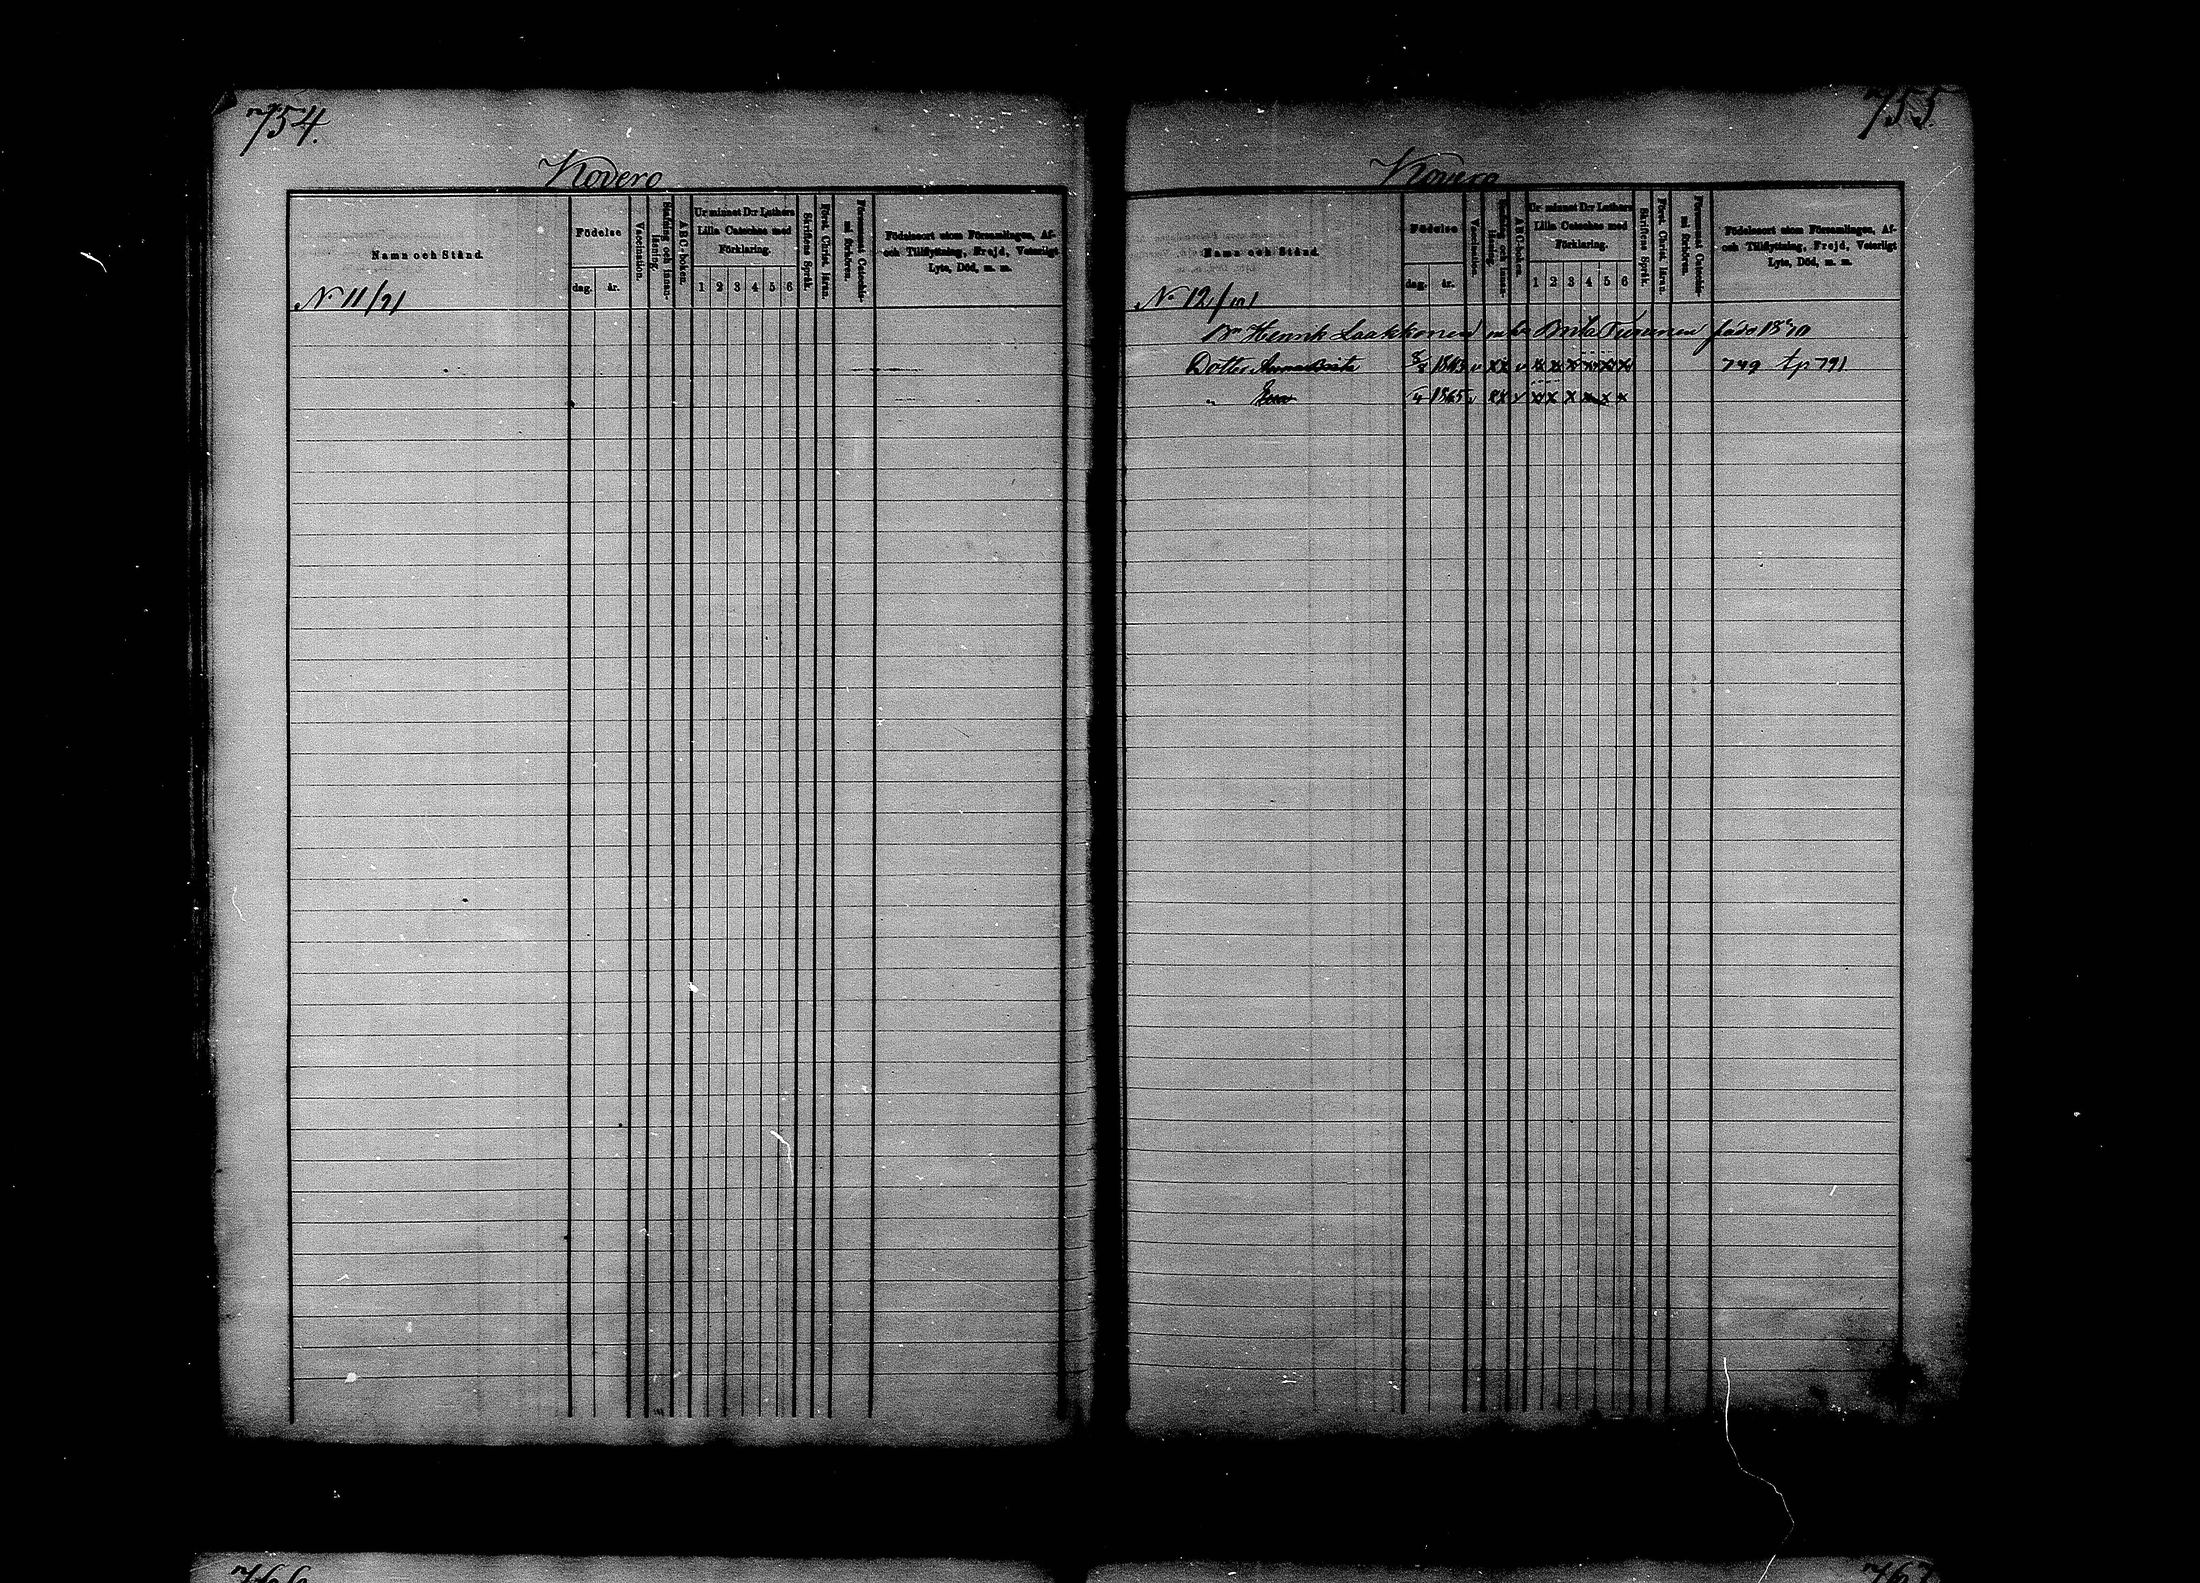 754.
Kovero
Namn och Stånd.
Födelse
dag. år.
Vaccination.
Stafning och innanläsning.
A B C-boken.
Ur minnet D:r Luthers Lilla Cateches med Förklaring.
1 2 3 4 5 6
Skriftens Språk.
Först. Christ. läran.
Försummat Catechismi förhören.
Födelseort utom Församlingen, Af- och Tillflyttning, Frejd, Veterligt Lyte, Död, m. m.
No 11/21
755.
Kovero
Namn och Stånd.
Födelse
dag. år.
Vaccination.
Stafning och innanläsning.
A B C-boken.
Ur minnet D:r Luthers Lilla Cateches med Förklaring.
1 2 3 4 5 6
Skriftens Språk.
Först. Christ. läran.
Försummat Catechismi förhören.
Födelseort utom Församlingen, Af- och Tillflyttning, Frejd, Veterligt Lyte, Död, m. m.
No 12/101
Bn Henrik Laakkonen Turunen
Dotter Anna Brita 1843 v xx v x x x x x x 749 tp 791
" Eva 1865 v xx v x x x x x x
766
767